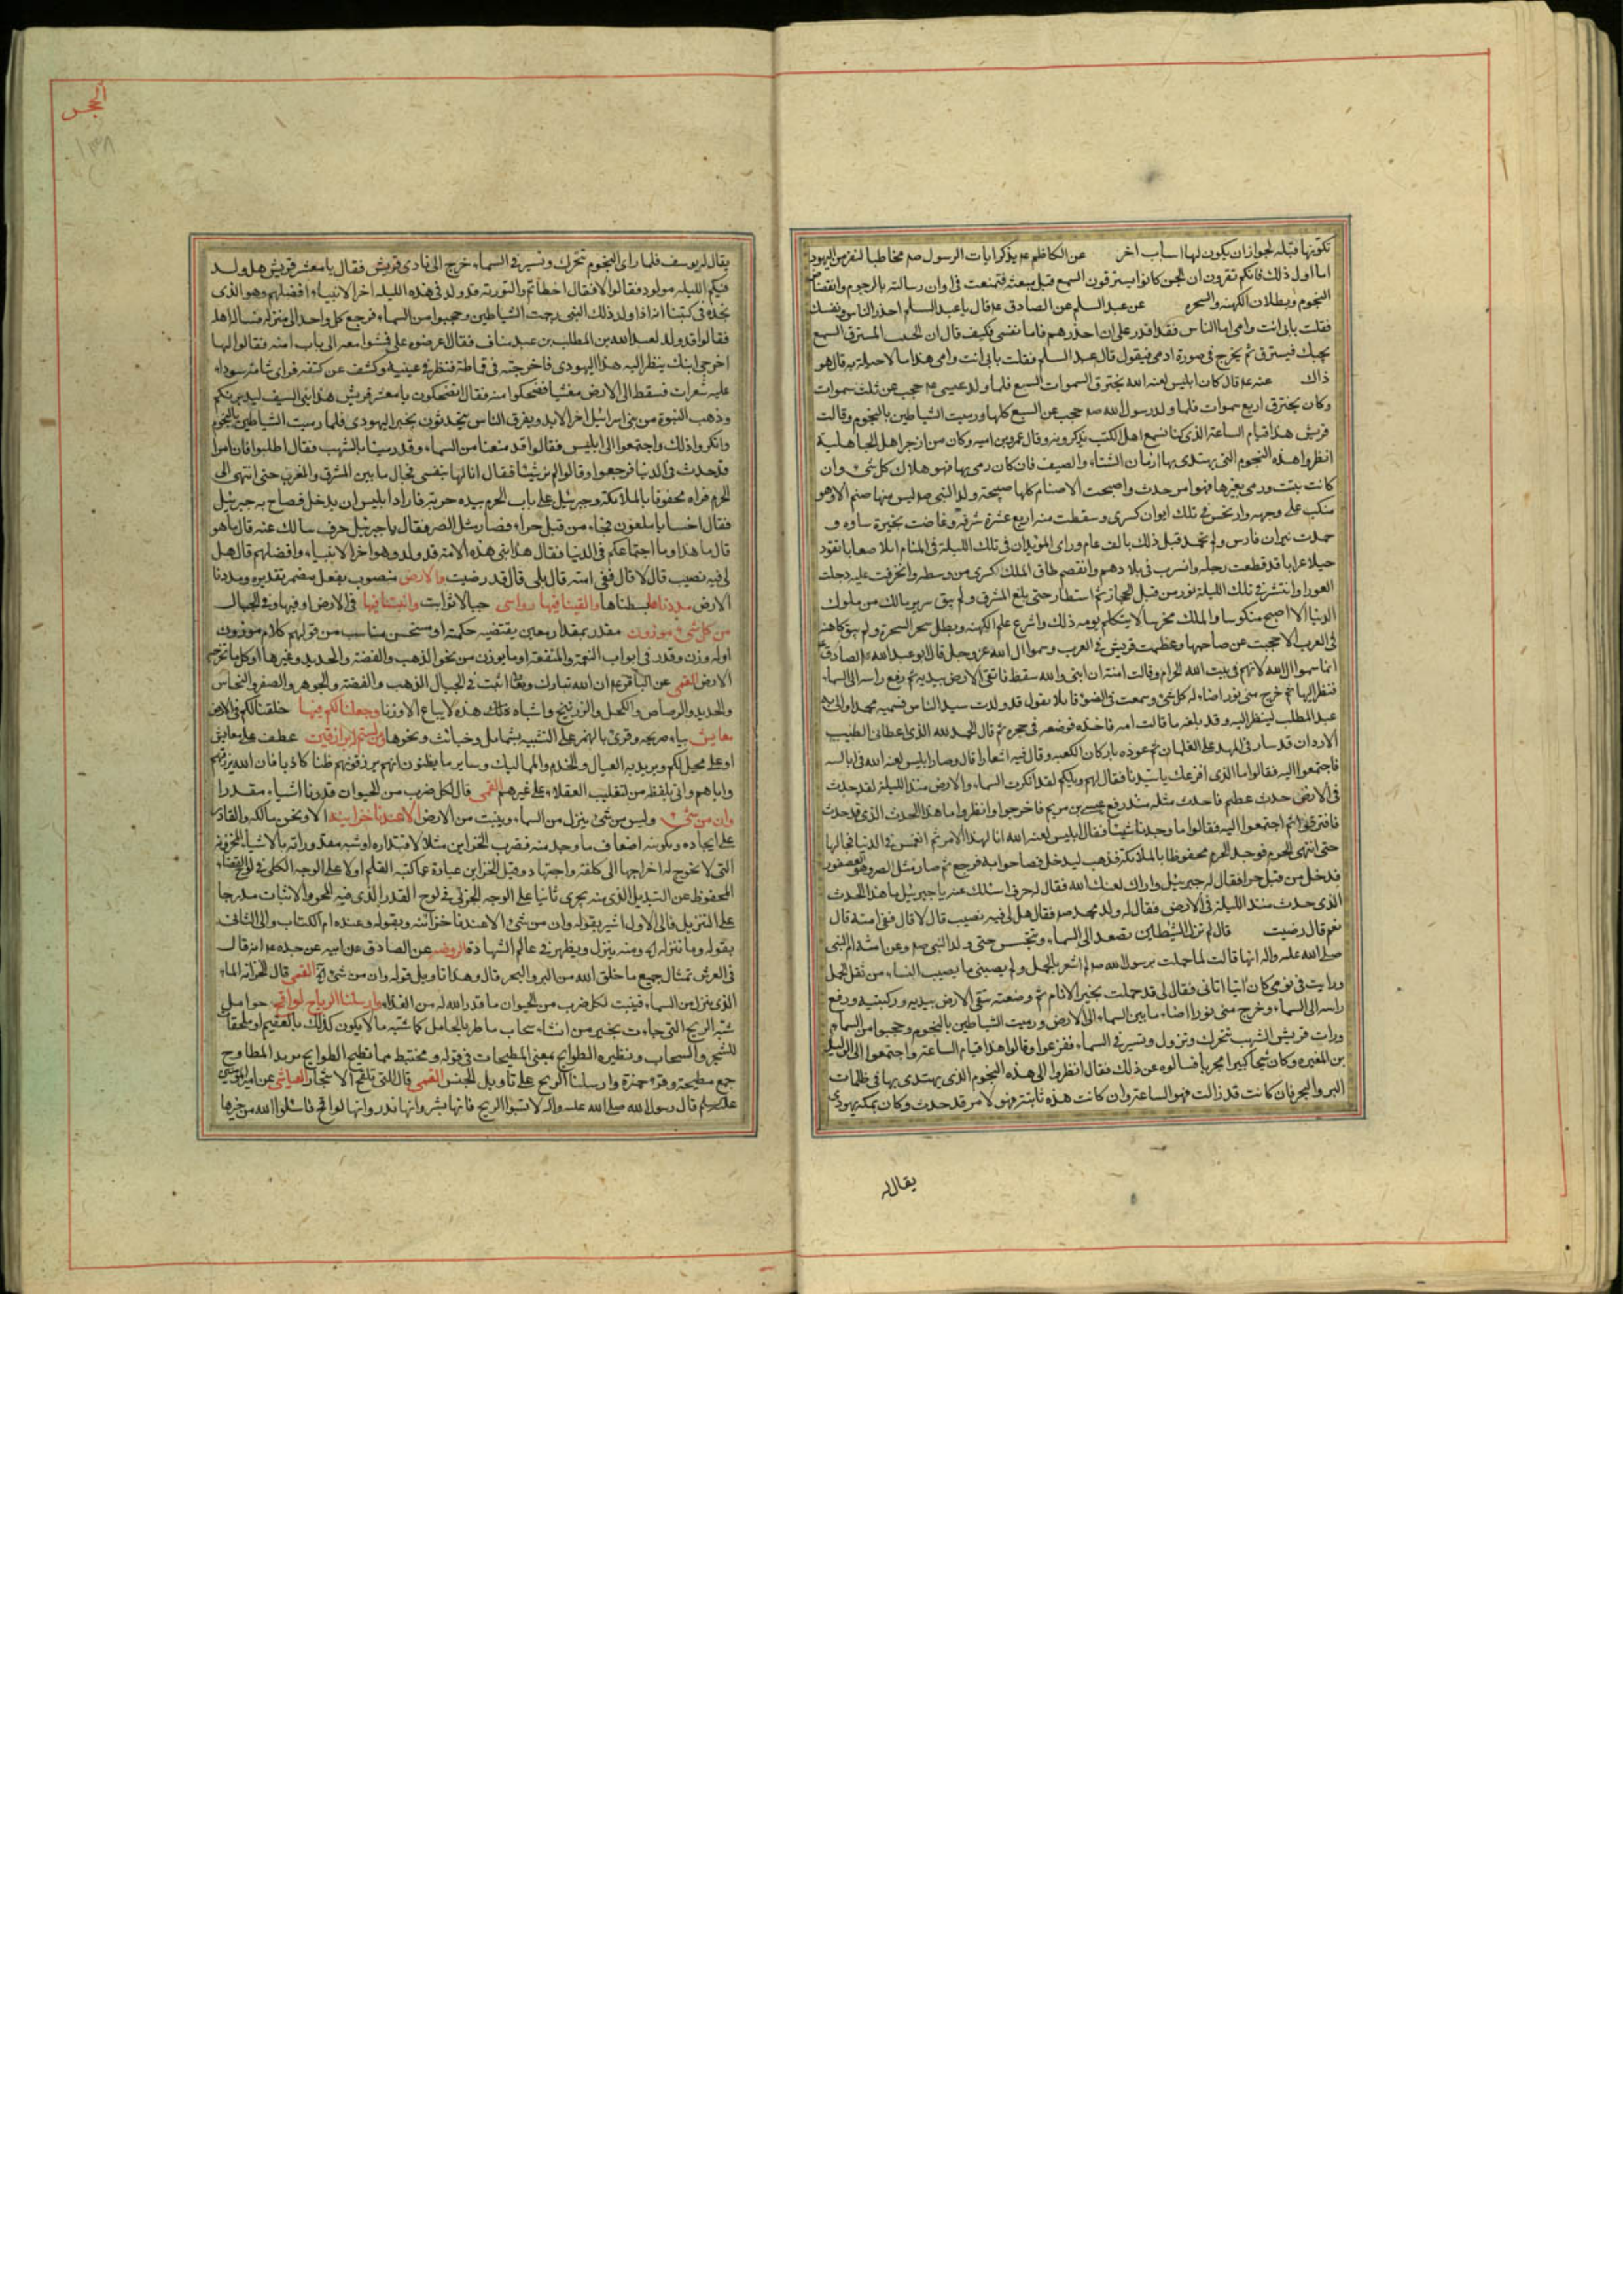 تكونها قبله لجواز ان يكون لها اسباب اخر عن الكاظم عم يذكر ايات الرسول صم مخاطبا لنفر من اليهود
اما اول ذلك فانكم تقرون ان الجن كانوا يسترقون السمع قبل مبعثه فمنعت فى اوان رسالته بالرجوم وانقضاض
النجوم وبطلان الكهنه والسحره عن عبد السلم عن الصادق عم قال يا عبد السلم احذر الناس ونفسك
فقلت بابى انت وامى اما الناس فقد اقدر على ان احذرهم فاما نفسى فكيف قال ان الخبيث المسترق السمع
يجيك فيسترق ثم يخرج فى صورة ادمى فيقول قال عبد السلم فقلت بابى انت وامى هذا ما لا حيلة به قال هو
ذاك عنه عم قال كان ابليس لعنه الله يخترق السموات السبع فلما ولد عيسى عم حجب عن ثلث سموات
وكان يخترق اربع سموات فلما ولد رسول الله صم حجب عن السبع كلها ورميت الشياطين بالنجوم وقالت
قريش هذا قيام الساعة الذى كنا نسمع اهل الكتب يذكرونه وقال عمرو بن اميه وكان من ازجر اهل الجاهلية
انظروا هذه النجوم التى يهتدى بها ازمان الشتاء والصيف فان كان رمى بها فهو هلاك كل شئ وان
كانت ثبتت ورمى بغيرها فهو امر حدث واصبحت الاصنام كلها صبيحة ولد النبى صم ليس منها صنم الا وهو
منكب على وجهه وارتجس فى تلك ايوان كسرى وسقطت منه اربع عشرة شرفة وغاضت بحيرة ساوه و
خمدت نيران فارس ولم تخمد قبل ذلك بالف عام وراى الموبذان فى تلك الليلة فى المنام ابلا صعابا تقود
خيلا عرابا قد قطعت دجلة وانسرب فى بلادهم وانقصم طاق الملك كسرى من وسطه وانخرقت عليه دجلة
العورا وانتشر فى تلك الليلة نور من قبل الحجاز ثم استطار حتى بلغ المشرق ولم يبق سرير مالك من ملوك
الدنيا الا اصبح منكوسا والملك مخرسا لا يتكلم يومه ذلك وانتزع علم الكهنه وبطل سحر السحرة ولم يبق كاهنة
فى العرب الا حجبت عن صاحبها وعظمت قريش فى العرب وسموا ال الله عز وجل قال ابو عبد الله الصادق عم
انما سموا ال الله لانهم فى بيت الله الحرام وقالت امنة ان ابنى والله سقط فاتقى الارض بيديه ثم رفع راسه الى السماء
فنظر اليها ثم خرج منى نور اضاء له كل شئ وسمعت فى الضوء قائلا يقول قد ولدت سيد الناس فسميه محمدا واتى به
عبد المطلب لينظر اليه وقد بلغه ما قالت امه فاخذه فوضعه فى حجره ثم قال الحمد لله الذى اعطانى الطيب
الاردان قد ساد فى المهد على الغلمان ثم عوذه باركان الكعبه وقال فيه اشعارا قال وصاح ابليس لعنه الله فى ابالسه
فاجتمعوا اليه فقالوا ما الذى افزعك يا سيدنا فقال لهم ويلكم لقد انكرت السماء والارض منذ الليلة لقد حدث
فى الارض حدث عظيم ما حدث مثله منذ رفع عيسى بن مريم فاخرجوا وانظروا ما هذا الحدث الذى قد حدث
فافترقوا ثم اجتمعوا اليه فقالوا ما وجدنا شيئا فقال ابليس لعنه الله انا لهذا الامر ثم انغمس فى الدنيا فجالها
حتى انتهى الى الحرم فوجد الحرم محفوظا بالملائكة فذهب ليدخل فصاحوا به فرجع ثم صار مثل الصر وهو العصفور
فدخل من قبل حرا فقال له جبرئيل وراك لعنك الله فقال له حرف اسئلك عنه يا جبرئيل ما هذا الحدث
الذى حدث منذ الليلة فى الارض فقال له ولد محمد صم فقال هل لى فيه نصيب قال لا قال ففى امته قال
نعم قال رضيت قال لم تزل الشياطين تصعد الى السماء وتجسس حتى ولد النبى صم وعن امنه ام النبى
صلى الله عليه واله انها قالت لما حملت برسول الله صم لم اشعر بالحمل ولم يصبنى ما يصيب النساء من ثقل الحمل
ورايت فى نومى كان اتيا اتانى فقال لى قد حملت بخير الانام ثم وضعته يتقى الارض بيديه وركبتيه ورفع
راسه الى السماء وخرج منى نور اضاء ما بين السماء الى الارض ورميت الشياطين بالنجوم وحجبوا من السماء
ورات قريش الشهب تتحرك وتزول وتسير فى السماء ففزعوا وقالوا هذا قيام الساعة واجتمعوا الى الوليد
بن المغيره وكان شيخا كبيرا مجربا فسالوه عن ذلك فقال انظروا الى هذه النجوم الذى يهتدى بها فى ظلمات
البر والبحر فان كانت قد زالت فهو الساعة وان كانت هذه ثابتة فهو لامر قد حدث وكان بمكة يهودى
يقال له
الحجر
١٣٨
يقال له يوسف فلما راى النجوم تتحرك وتسير فى السماء خرج الى نادى قريش فقال يا معشر قريش هل ولد
فيكم الليله مولود فقالوا لا فقال اخطاتم والتورية قد ولد فى هذه الليله اخر الانبياء وافضلهم وهو الذى
نجده فى كتبنا انه اذا ولد ذلك النبى رجمت الشياطين وحجبوا من السماء فرجع كل واحد الى منزله فسال اهله
فقالوا قد ولد لعبد الله بن المطلب بن عبد مناف فقال اعرضوه على فمشوا معه الى باب امنه فقالوا لها
اخرجى ابنك ينظر اليه هذا اليهودى فاخرجته فى قماطة فنظر فى عينيه وكشف عن كتفه فراى شامة سوداء
عليه شعرات فسقط الى الارض مغشيا فضحكوا منه فقال اتضحكون يا معشر قريش هذا نبى السيف ليبيرنكم
وذهب النبوة من بنى اسرائيل اخر الابد وتفرق الناس يتحدثون بخبر اليهودى فلما رميت الشياطين بالنجوم
وانكروا ذلك واجتمعوا الى ابليس فقالوا قد منعنا من السماء وقد رمينا بالشهب فقال اطلبوا فان امرا
قد حدث فى الدنيا فرجعوا وقالوا لم نر شيئا فقال انا لها بنفسى فجال ما بين المشرق والمغرب حتى انتهى الى
الحرم فراه محفوفا بالملائكة وجبرئيل على باب الحرم بيده حربة فاراد ابليس ان يدخل فصاح به جبرئيل
فقال اخسا يا ملعون فجاء من قبل حراء فصار مثل الصر فقال يا جبرئيل حرف سالك عنه قال ما هو
قال ما هذا وما اجتماعكم فى الدنيا فقال هذا نبى هذه الامة قد ولد وهو اخر الانبياء وافضلهم قال هل
لى فيه نصيب قال لا قال ففى امته قال بلى قال قد رضيت والارض منصوب بفعل مضمر تقديره ومددنا
الارض مددناها بسطناها والقينا فيها رواسى جبالا ثوابت وانبتنا فيها فى الارض او فيها وفى الجبال
من كل شئ موزون مقدر بمقدار معين يقتضيه حكمة او مستحسن مناسب من قولهم كلام موزون
او له وزن وقدر فى ابواب النعمة والمنفعة او ما يوزن من نحو الذهب والفضة والحديد وغيرها
الارض القمى عن الباقر عم ان الله تبارك وتعالى انبت فى الجبال الذهب والفضة والجوهر والصفر والنحاس
والحديد والرصاص والكحل والزرنيخ واشباه ذلك هذه لا يباع الا وزنا وجعلنا لكم فيها خلقنا لكم فى الارض
معايش بياء صريحة وقرئ بالهمز على التشبيه بشمايل وخبائث ونحوها ومن لستم له برازقين عطف على معايش
او على محل لكم ويريد به العيال والخدم والمماليك وساير ما يظنون انهم يرزقونهم ظنا كاذبا فان الله يرزقهم
واياهم واتى بلفظ من لتغليب العقلاء على غيرهم القمى قال لكل ضرب من الحيوان قدرنا اشياء مقدرا
وان من شئ وليس من شئ ينزل من السماء وينبت من الارض الا عندنا خزاينه الا ونحن مالكه والقادر
على ايجاده وتكوينه اضعاف ما وجد منه فضرب الخزاين مثلا لاقتداره او شبه مقدوراته بالاشياء المخزونة
التى لا تخرج له اخراجها الى كلفة واجتهاد وقيل الخزاين عبارة عما كتبه القلم اولا على الوجه الكلى فى لوح القضاء
المحفوظ عن التبديل الذى منه يجرى ثانيا على الوجه الجزئى فى لوح القدر الذى فيه المحو والاثبات مدرجا
على التنزيل فالى الاول اشير بقوله وان من شئ الا عندنا خزائنه وبقوله وعنده ام الكتاب والى الثانى
بقوله وما ننزله اه ومنه ينزل ويظهر فى عالم الشهادة الروضه عن الصادق عن ابيه عن جده عم انه قال
فى العرش تمثال جميع ما خلق الله من البر والبحر قال وهذا تاويل قوله وان من شئ اه القمى قال الخزانه الماء
الذى ينزل من السماء فينبت لكل ضرب من الحيوان ما قدر الله له من الغذاء وارسلنا الرياح لواقح حوامل
شبه الريح التى جاءت بخير من انشاء سحاب ماطر بالحامل كما شبه ما لا يكون كذلك بالعقيم او ملقحات
للشجر والسحاب ونظيره الطوايح بمعنى المطيحات فى قوله ومختبط مما تطيح الطوايح يريد المطاوح
جمع مطيحة وقرء حمزة وارسلنا الريح على تاويل الجنس القمى قال التى تلقح الاشجار العياشى عن امير المؤمنين
عليه السلم قال رسول الله صلى الله عليه واله لا تسبوا الريح فانها بشر وانها نذر وانها لواقح فاسئلوا الله من خيرها